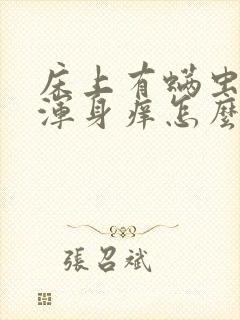 床上有螨虫
渾身痒怎麼
張召斌